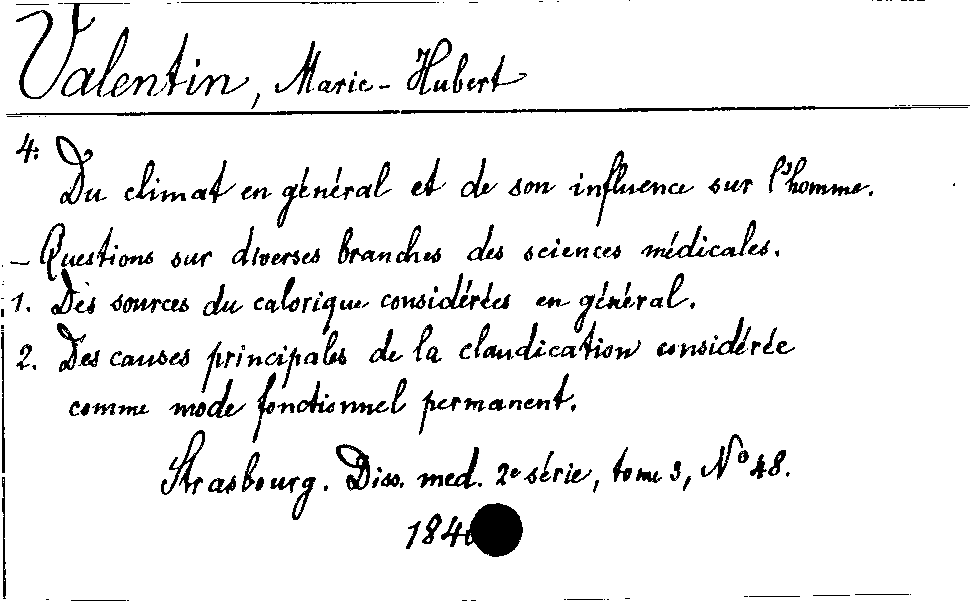 Valentin, Marie-Hubert
4:
Du climat en général et de son influence sur l'homme.
– Questions sur diverses branches des sciences médicales.
1. Des sources du calorique considérées en général.
2. Des causes principales de la claudication considérée
comme mode fonctionnel permanent.
Strasbourg. Diss. med. 2e série, tome 3, No 48.